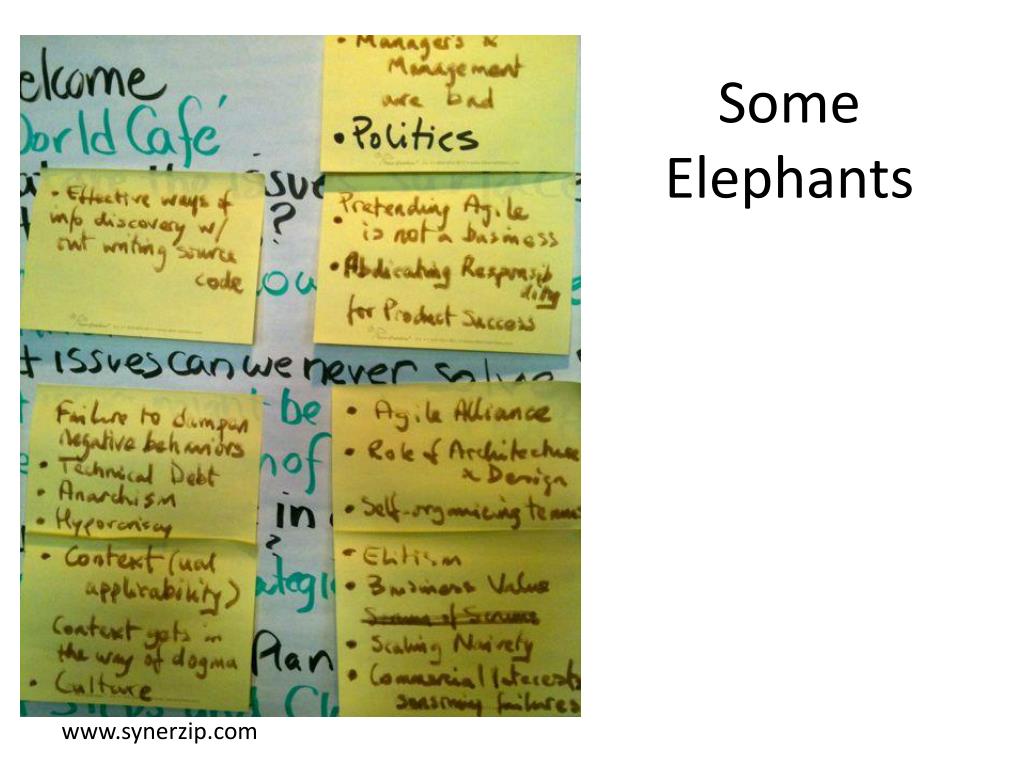 Some
Elephants
elcome
orld Café
• Managers &
Management
are bad
• Politics
the issue
?
• Effective ways of
info discovery w/
out writing source
code
Pretending Agile
• is not a business
• Abdicating Responsibi
lity
for Product Success
issues can we never solve
might be
Failure to dampen
negative behaviors
• Technical Debt
• Anarchism
• Hypocrisy
• Agile Alliance
• Role of Architecture
& Design
• Self-organizing teams
of
in
?
• Context (ual
applicability)
Context gets in
the way of dogma
• Culture
• Elitism
• Business Value
Scrum of Scrums
• Scaling Naivety
• Commercial Interests
failures
Plan
www.synerzip.com